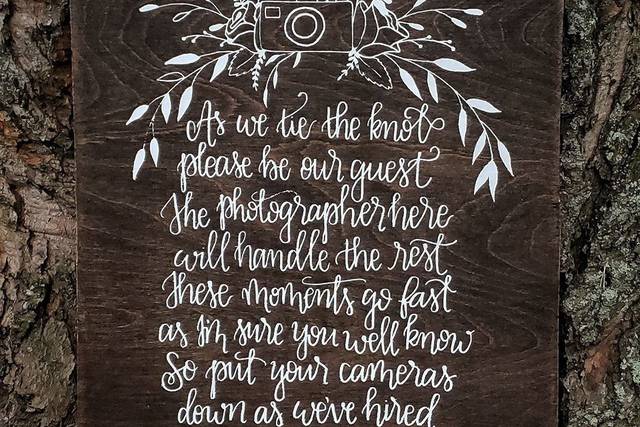 As we tie the knot
please be our guest
The photographer here
will handle the rest
These moments go fast
as I'm sure you well know
So put your cameras
down as we've hired